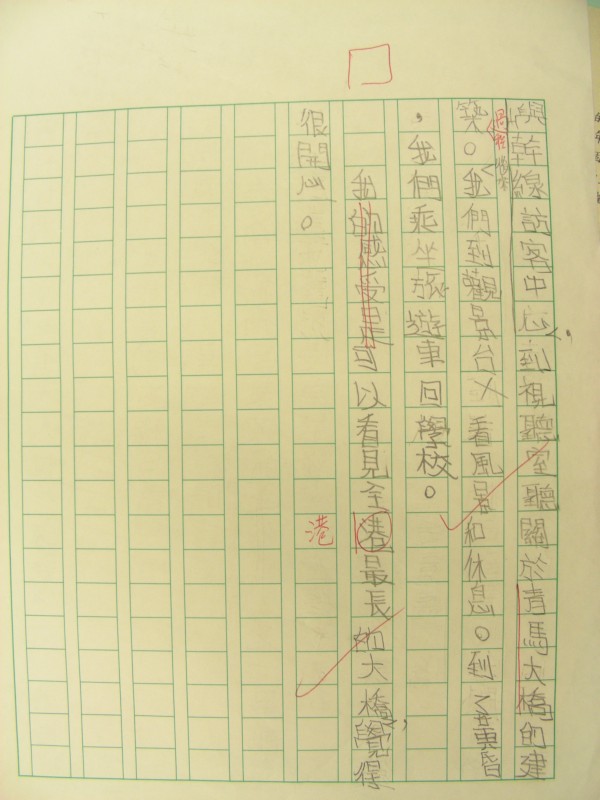 與幹線訪客中心到視聽室聽關於青馬大橋的建
築。我們到觀景台看風景和休息。到了黃昏
過程
,我們乘坐旅遊車回學校。
我的感受是可以看見全港最長的大橋,覺得
港
很開心。